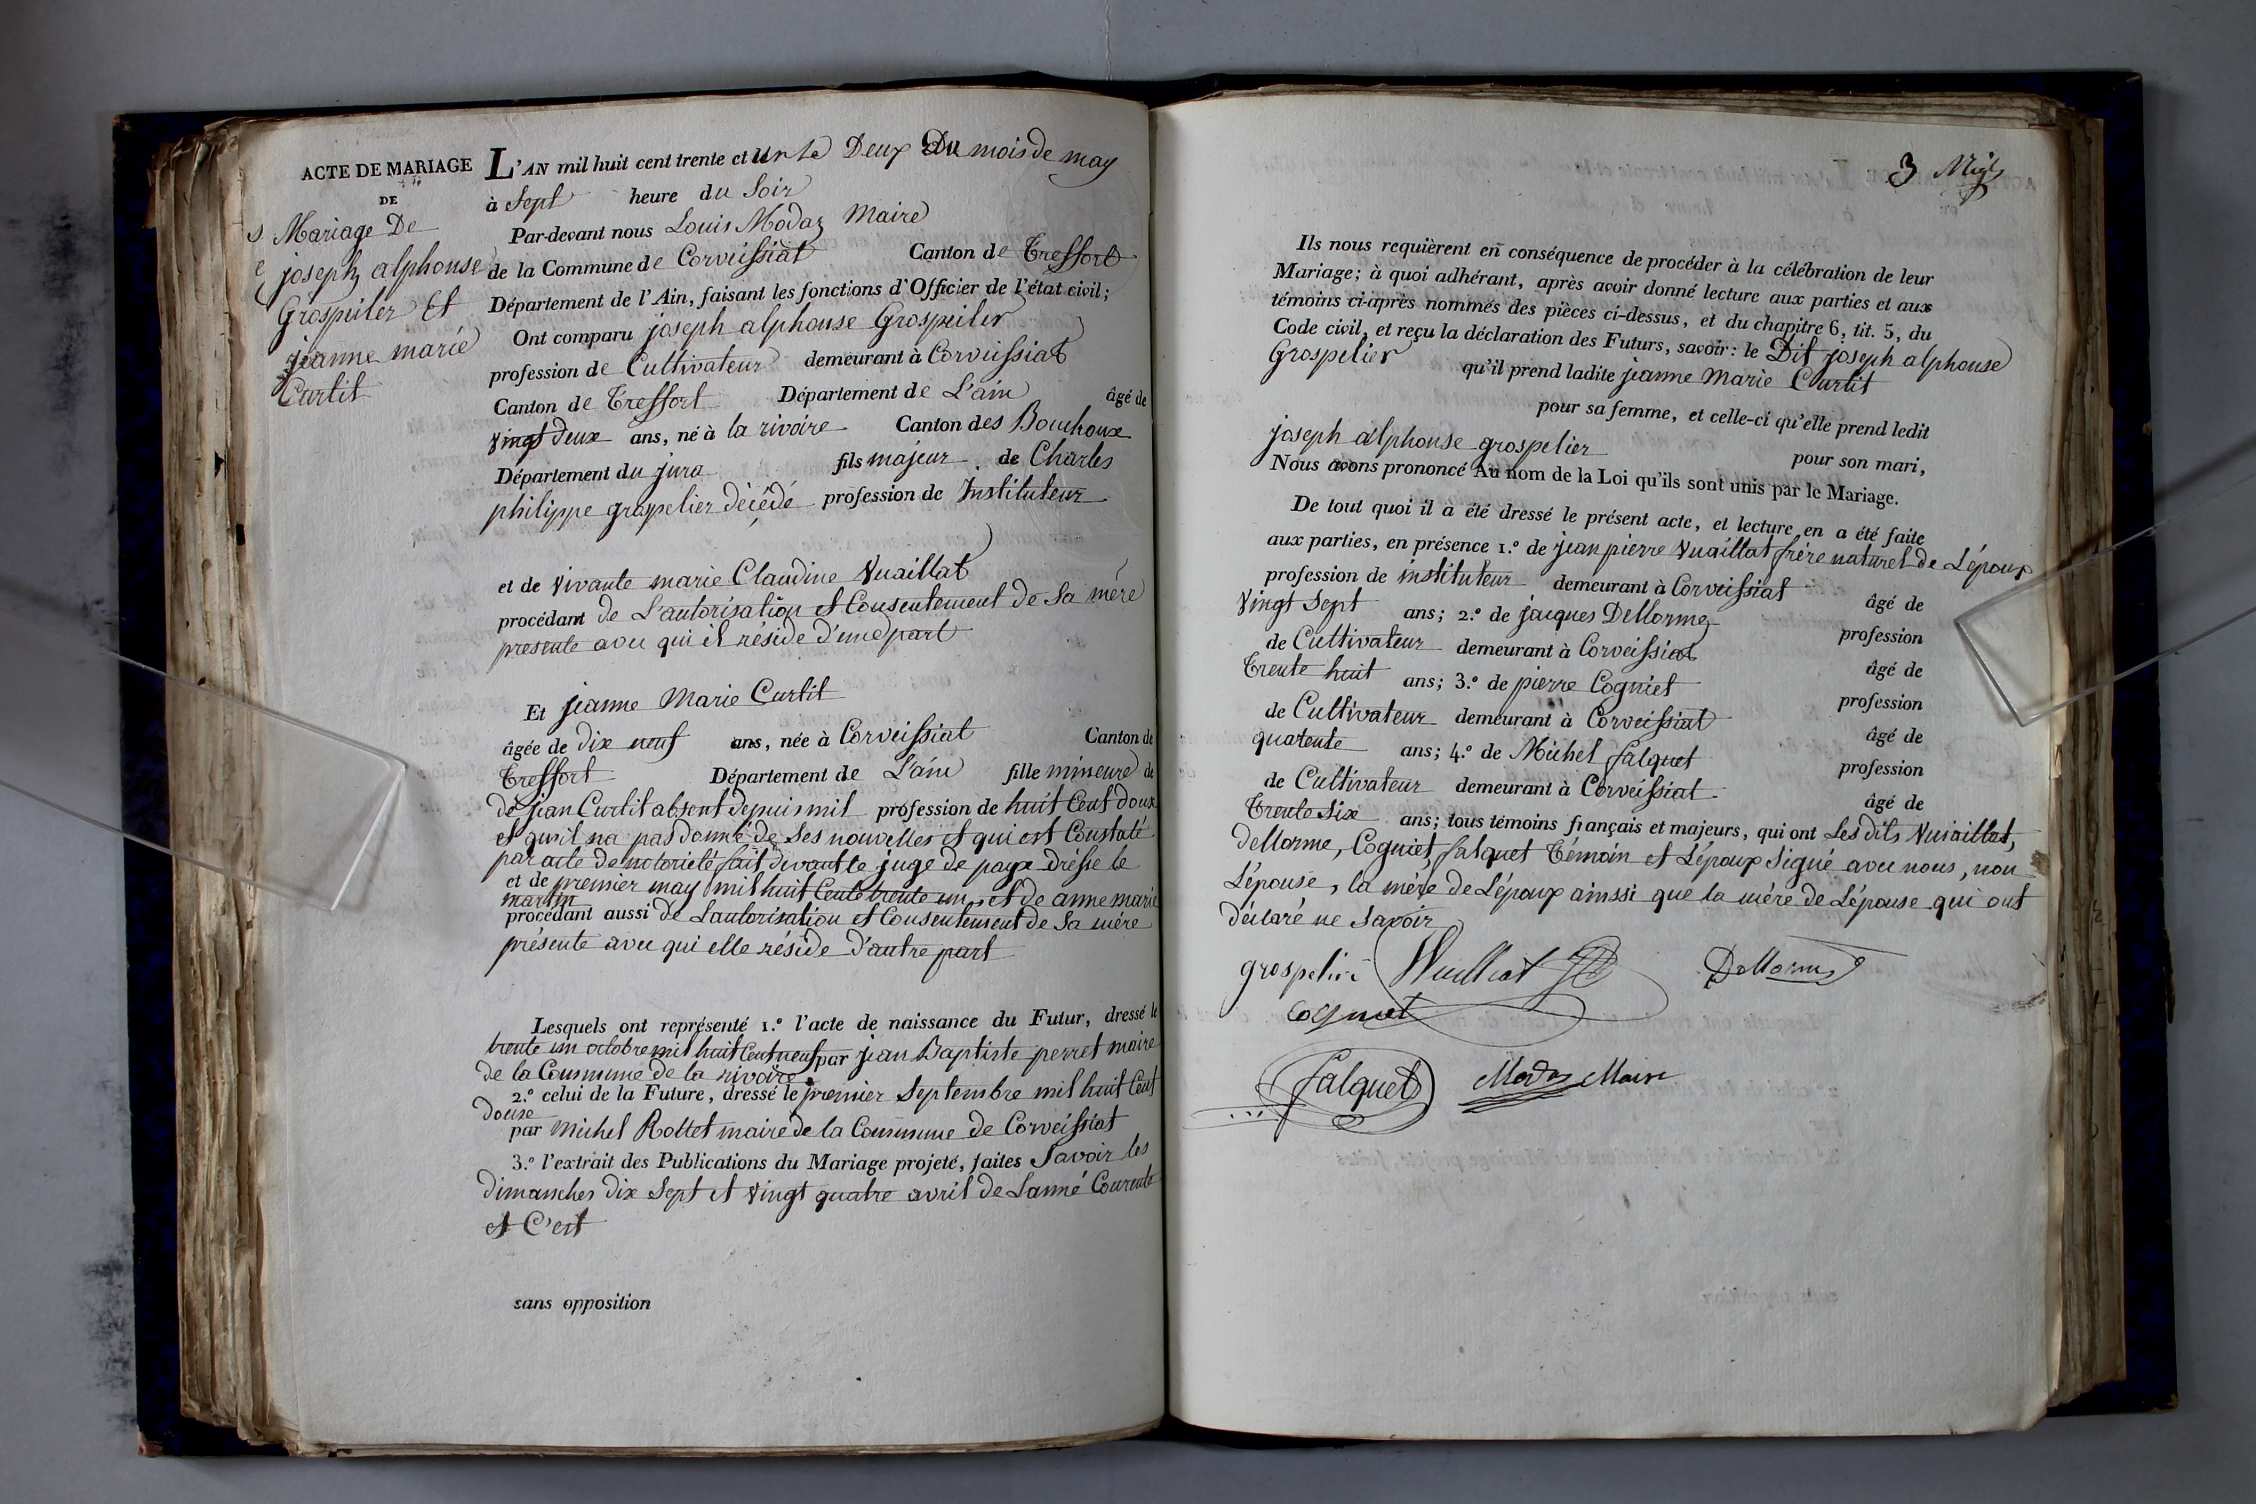 ACTE DE MARIAGE
DE
Mariage De
joseph alphonse
Grospeiler Et
jeanne marie
Curtit
L'AN mil huit cent trente et un le Deux du mois de may
à Sept heure du Soir
Par-devant nous Louis Modaz Maire
de la Commune de Corveissiat Canton de Treffort
Département de l'Ain, faisant les fonctions d'Officier de l'état civil;
Ont comparu joseph alphonse Grospeiler
profession de Cultivateur demeurant à Corveissiat
Canton de Treffort Département de L'ain âgé de
vingt deux ans, né à la rivoire Canton des Bouchoux
Département du jura fils majeur de Charles
philippe grospelier décédé profession de Instituteur
et de vivante marie Claudine Vuaillat
procédant de L'autorisation et Consentement de Sa mére
presente avec qui il réside d'une part
Et jeanne Marie Curtit
âgée de dix neuf ans, née à Corveissiat Canton de
Treffort Département de L'ain fille mineure de
de jean Curtit absent depuis mil profession de huit Cent douze
et qu'il na pas donné de Ses nouvelles et qui est Constaté
par acte de notorieté fait devant le juge de paix Dréssé le
et de premier may mil huit Cent trente un, et de anne marie
martin
procédant aussi de Lautorisation et Consentement de Sa mére
présente avec qui elle réside d'autre part
Lesquels ont représenté 1.º l'acte de naissance du Futur, dressé le
trente un octobre mil huit Cent neuf par jean Baptiste perret maire
de la Commune de la rivoire
2.º celui de la Future, dressé le premier Septembre mil huit Cent
douze
par michel Rottet maire de la Commune de Corveissiat
3.º l'extrait des Publications du Mariage projeté, faites Savoir les
dimanches dix Sept et vingt quatre avril de Lanné Courente
et C'est
sans opposition
3
Ils nous requièrent en conséquence de procéder à la célébration de leur
Mariage; à quoi adhérant, après avoir donné lecture aux parties et aux
témoins ci-après nommés des pièces ci-dessus, et du chapitre 6, tit. 5, du
Code civil, et reçu la déclaration des Futurs, savoir: le Dit joseph alphonse
Grospelier qu'il prend ladite jeanne Marie Curtit
pour sa femme, et celle-ci qu'elle prend ledit
joseph alphonse grospelier pour son mari,
Nous avons prononcé Au nom de la Loi qu'ils sont unis par le Mariage.
De tout quoi il à été dressé le présent acte, et lecture en a été faite
aux parties, en présence 1.º de jean pierre Vuaillat frère naturel de L'époux
profession de instituteur demeurant à Corveissiat âgé de
vingt Sept ans; 2.º de jacques Dellorme profession
de Cultivateur demeurant à Corveissiat âgé de
Trente huit ans; 3.º de pierre Cogniet profession
de Cultivateur demeurant à Corveissiat âgé de
quarente ans; 4.º de Michel falquet profession
de Cultivateur demeurant à Corveissiat âgé de
Trente Six ans; tous témoins français et majeurs, qui ont Les dits Vuiaillat,
dellorme, Cogniet, falquet Témoin et L'époux Signé avec nous, non
L'épouse, la mére de L'époux ainssi que la mére de L'épouse qui ont
déclaré ne Savoir
grospelier Vuilliat Dellorme
Cogniet
falquet Modaz Maire